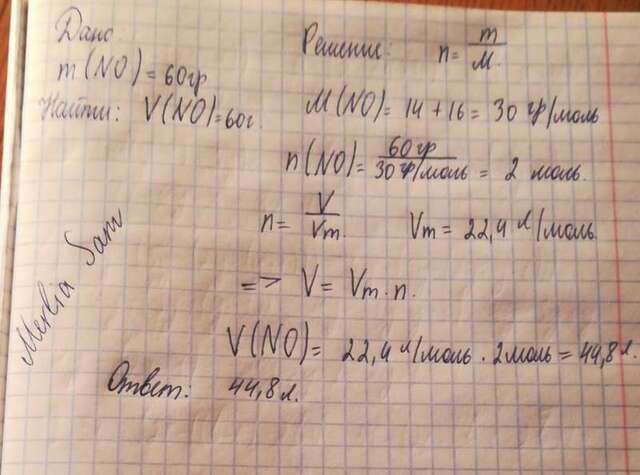 Дано
m(NO)=60гр
Найти: V(NO)=60г.
Решение: n= m/M.
M(NO)= 14+16= 30 гр/моль
n(NO)= 60гр/30гр/моль = 2 моль.
n= V/Vm Vm= 22,4 л/моль.
=> V= Vm·n.
V(NO)= 22,4 л/моль · 2моль = 44,8 л.
Ответ: 44,8 л.
Merlia Sam